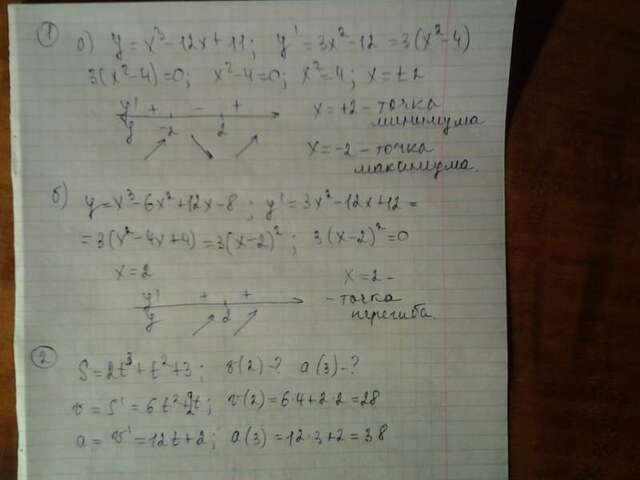 1 а) y = x³ - 12x + 11; y' = 3x² - 12 = 3(x² - 4)
3(x² - 4) = 0; x² - 4 = 0; x² = 4; x = ±2
y' + - + x = +2 - точка
y -2 2 минимума
x = -2 - точка
максимума.
б) y = x³ - 6x² + 12x - 8; y' = 3x² - 12x + 12 =
= 3(x² - 4x + 4) = 3(x - 2)²; 3(x - 2)² = 0
x = 2 x = 2 -
y' + + - точка
y 2 перегиба.
2 S = 2t³ + t² + 3; v(2) - ? a(3) - ?
v = S' = 6t² + 2t; v(2) = 6·4 + 2·2 = 28
a = v' = 12t + 2; a(3) = 12·3 + 2 = 38